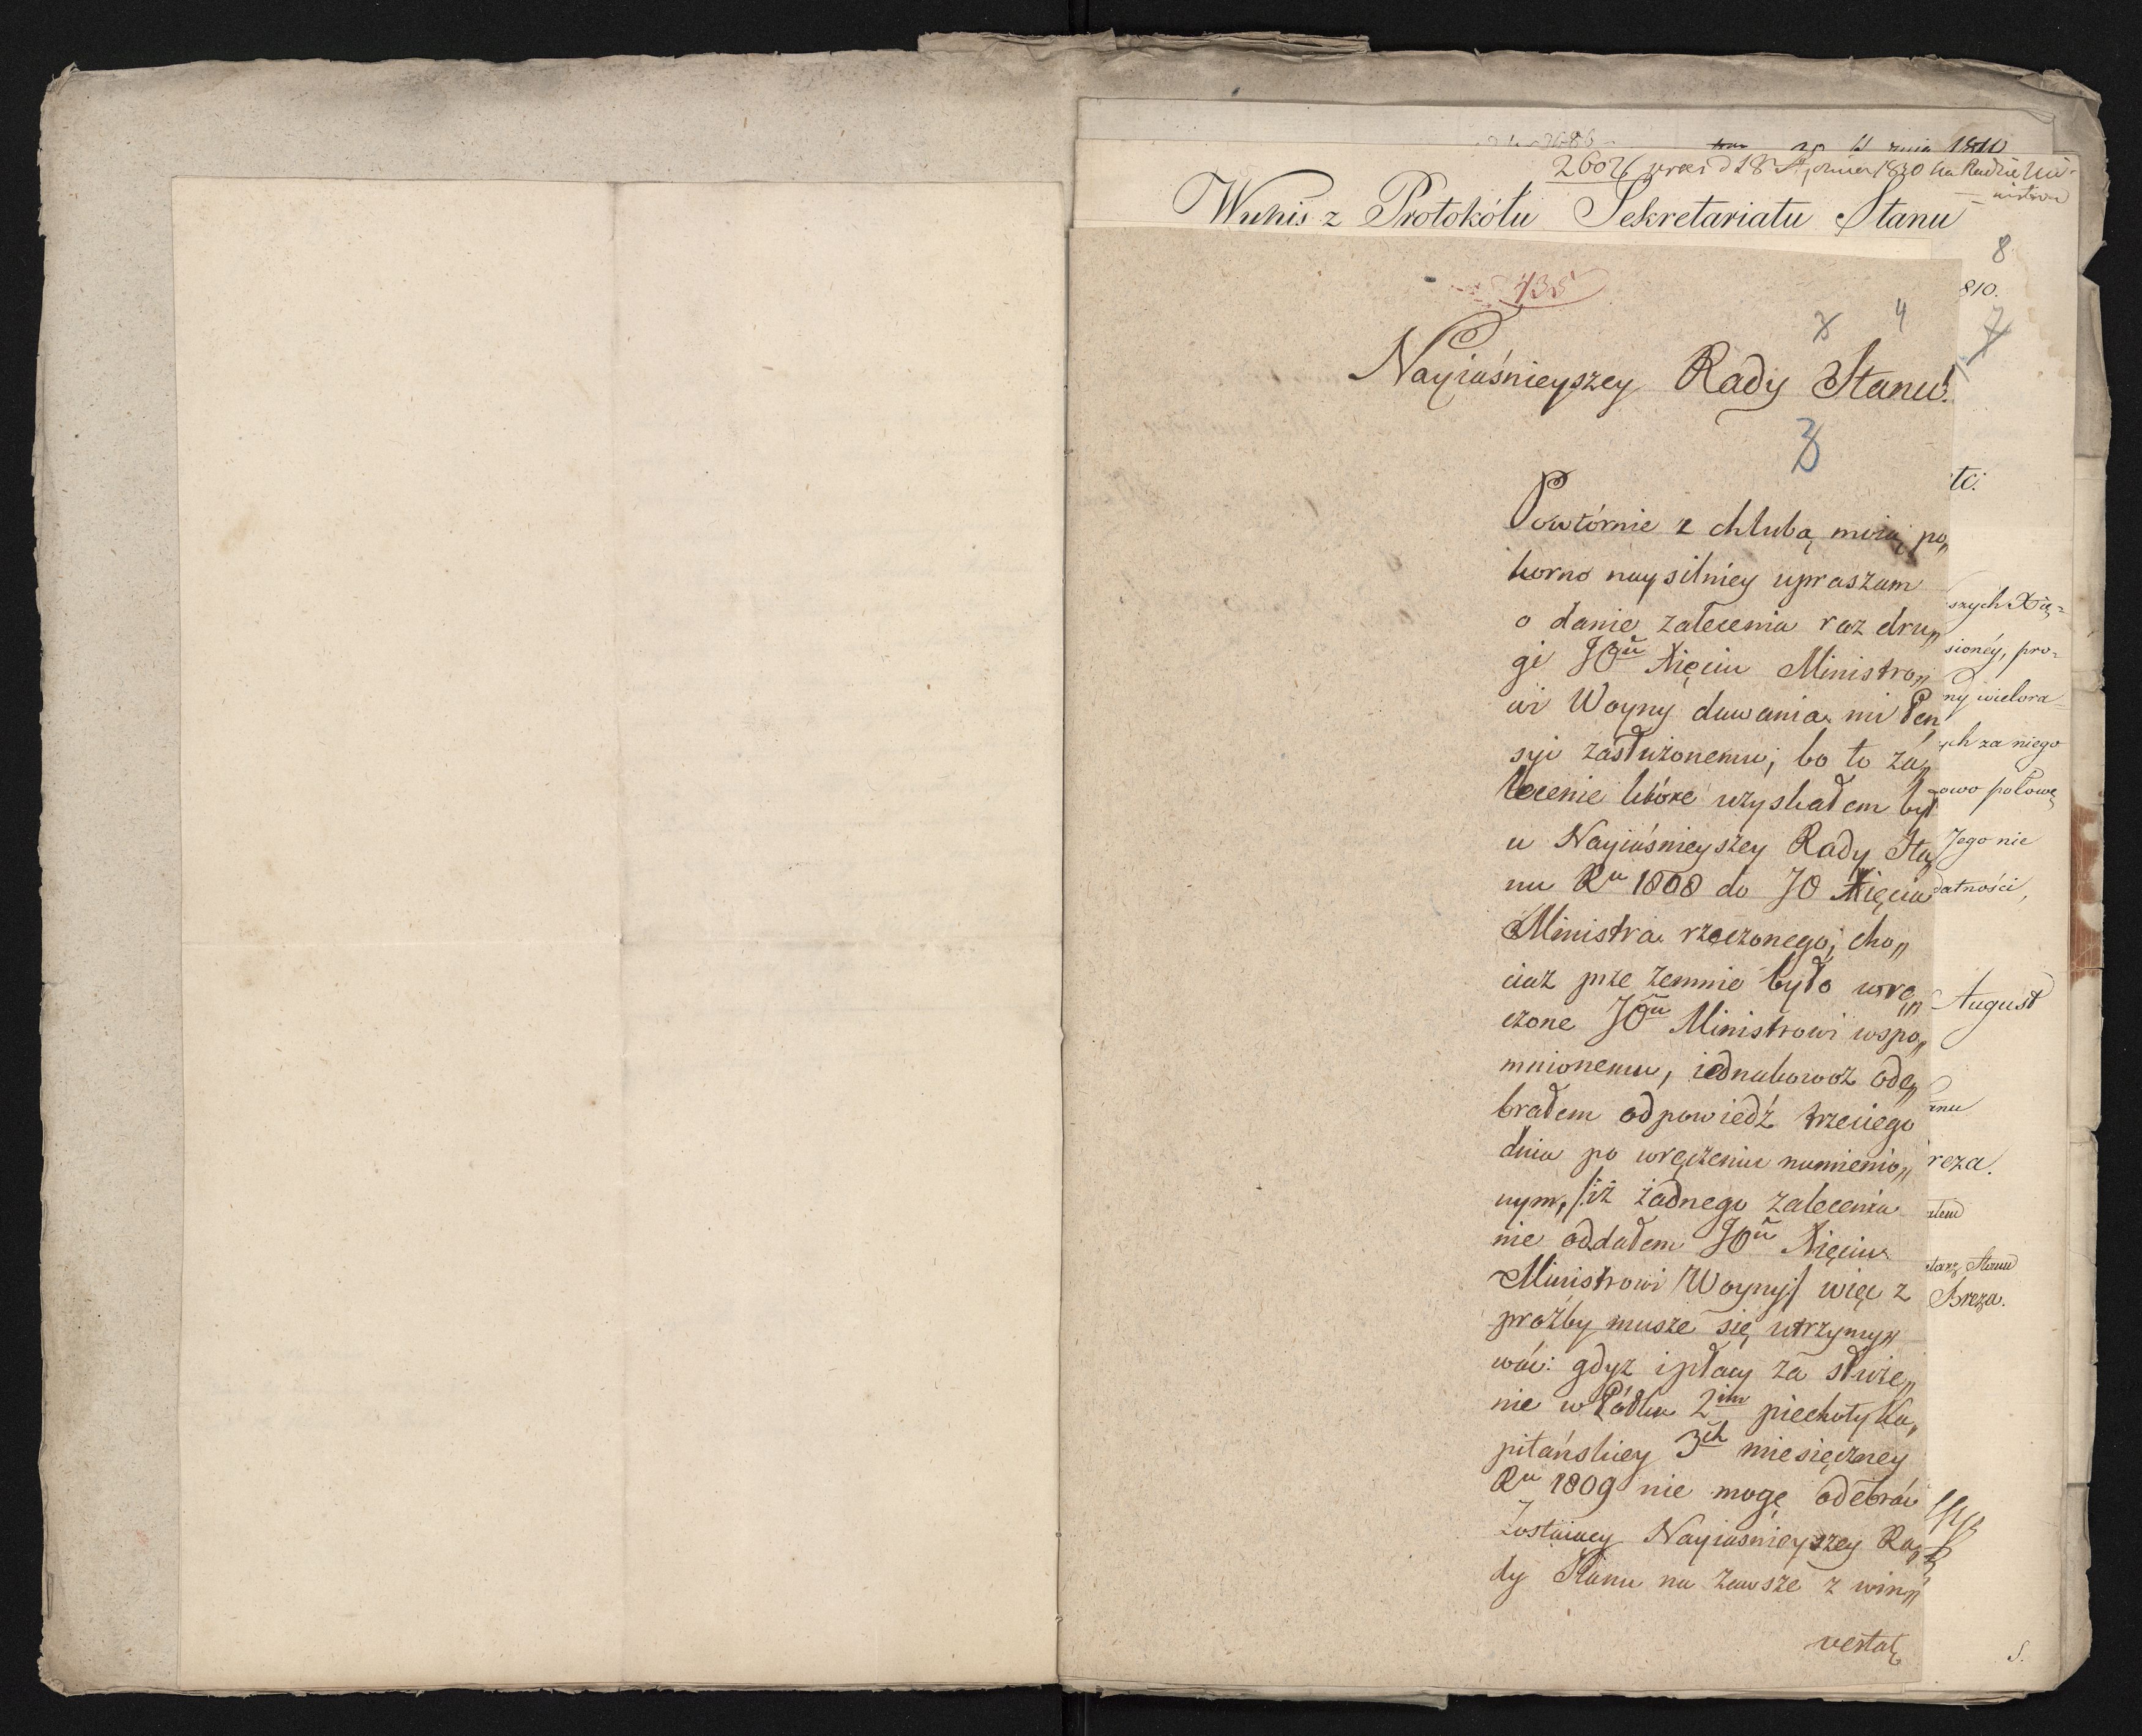 2602
Wypis z Protokółu Sekretariatu Stanu
8
810.
435
4
7
Nayiaśnieyszey Rady Stanu!
3
Powtórnie z chlubą moią po„
korno naysilniey upraszam
o danie zalecenia raz dru„
gi JOu Xięciu Ministro„
wi Woyny dawania mi Pen„
syi zasłużonemu; bo to za„
lecenie które uzyskałem był
u Nayiaśnieyszey Rady Sta„
nu Ru 1808 do JO Xięcia
Ministra rzeczonego; cho„
ciaz prze zemnie było wrę„
czone JOu Ministrowi wspo„
mnionemu, iednakowoż ode„
brałem odpowiedź trzeciego
dnia po wręczeniu namienio„
nym, /:iż żadnego zalecenia
nie oddałem JOu Xięciu
Ministrowi Woyny:/ więc z
proźby musze się utrzymy„
wać: gdyz i płacy za służe„
nie w Półku 2im piechoty Ka„
pitańskiey 3ch miesięczney
Ru 1809 nie mogę odebrać
Zostaiący Nayiaśnieyszey Ra„
dy Stanu na zawsze z winn„
tc.
szych Xię=
sionéy, pro=
ny wielora
ych za niego
owo połowę
Jego nie
datności,
August
anu
reza.
Stanu
Breza.
S.